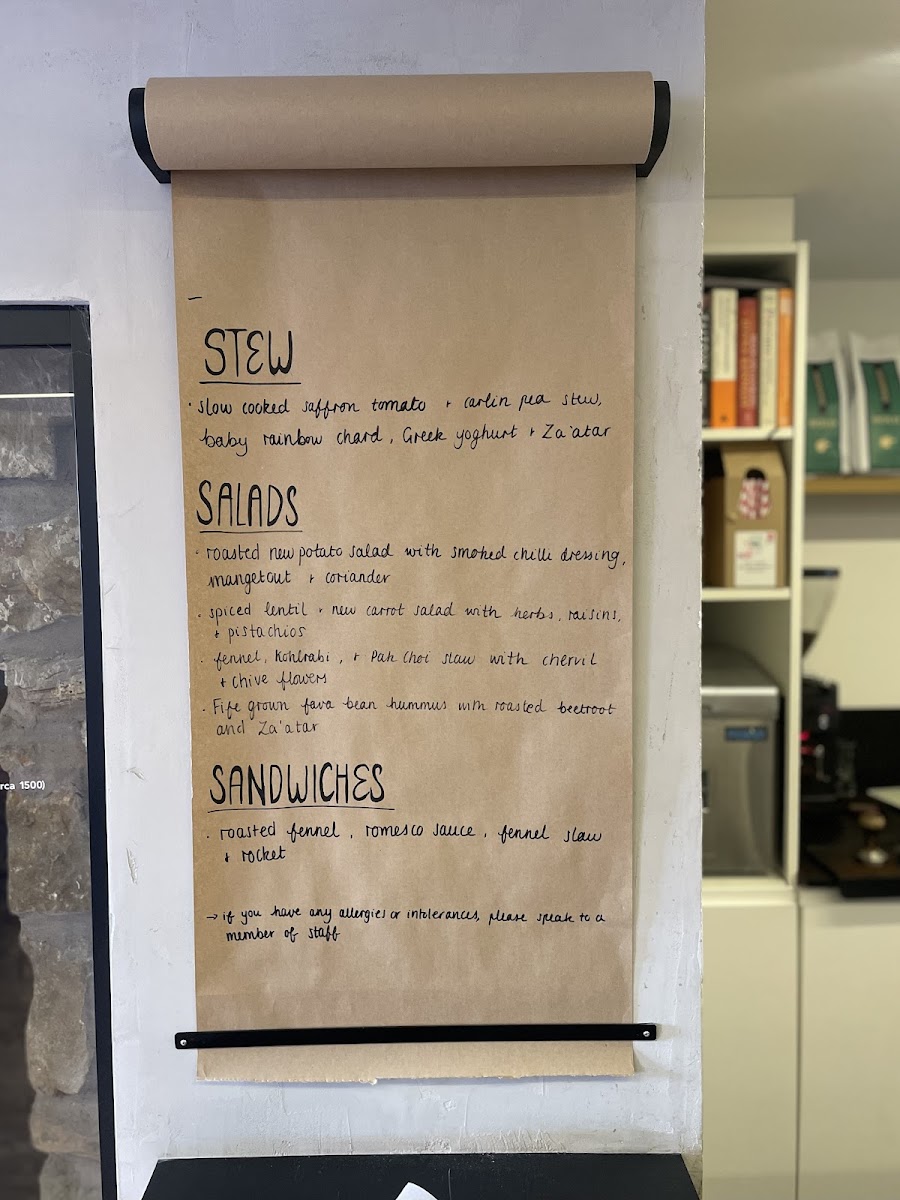 STEW
· slow cooked saffron tomato + carlin pea stew,
baby rainbow chard, Greek yoghurt + Za'atar
SALADS
· roasted new potato salad with smoked chilli dressing,
mangetout + coriander
· spiced lentil + new carrot salad with herbs, raisins,
+ pistachios
· fennel, Kohlrabi, + Pak Choi slaw with chervil
+ chive flowers
· Fife grown fava bean hummus with roasted beetroot
and Za'atar
SANDWICHES
· roasted fennel, romesco sauce, fennel slaw
+ rocket
→ if you have any allergies or intolerances, please speak to a
member of staff
rca 1500)